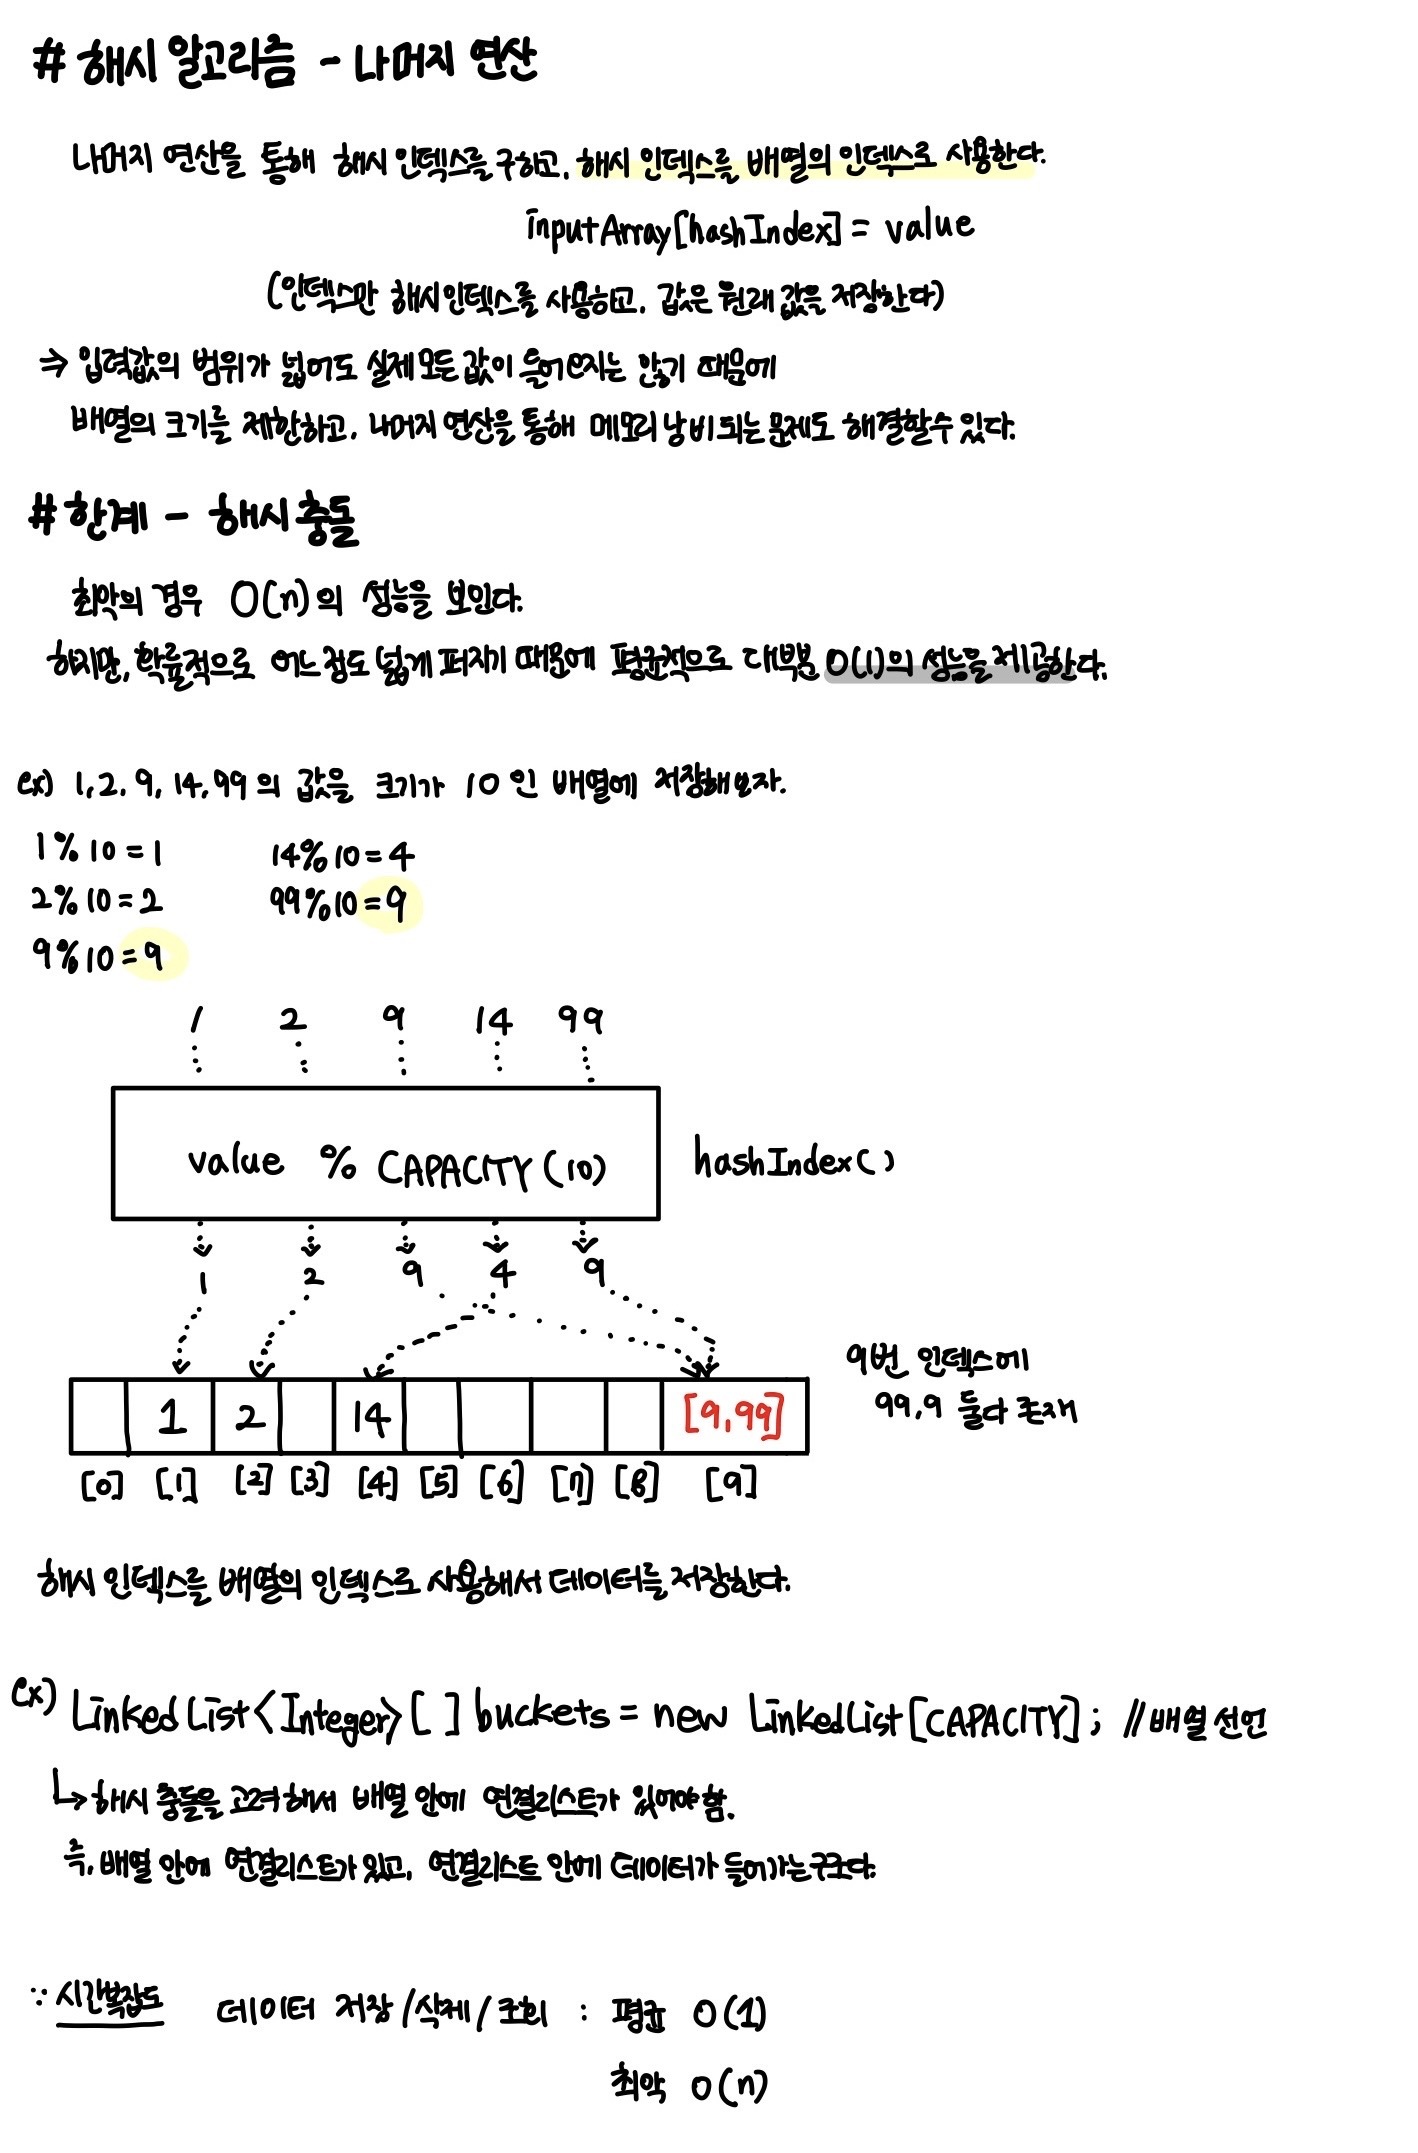 # 해시 알고리즘 - 나머지 연산
나머지 연산을 통해 해시 인덱스를 구하고, 해시 인덱스를 배열의 인덱스로 사용한다.
inputArray[hashIndex] = value
(인덱스만 해시 인덱스를 사용하고, 값은 원래 값을 저장한다)
⇒ 입력값의 범위가 넓어도 실제 모든 값이 들어오지는 않기 때문에
배열의 크기를 제한하고, 나머지 연산을 통해 메모리 낭비 되는 문제도 해결할 수 있다.
# 한계 - 해시 충돌
최악의 경우 O(n)의 성능을 보인다.
하지만, 확률적으로 어느 정도 넓게 퍼지기 때문에 평균적으로 대부분 O(1)의 성능을 제공한다.
ex) 1, 2, 9, 14, 99 의 값을 크기가 10 인 배열에 저장해보자.
1 % 10 = 1 14 % 10 = 4
2 % 10 = 2 99 % 10 = 9
9 % 10 = 9
1 2 9 14 99
value % CAPACITY (10) hashIndex()
1 2 9 4 9
9번 인덱스에
99, 9 둘다 존재
1 2 14 [9, 99]
[0] [1] [2] [3] [4] [5] [6] [7] [8] [9]
해시 인덱스를 배열의 인덱스로 사용해서 데이터를 저장한다.
ex) LinkedList<Integer>[ ] buckets = new LinkedList[CAPACITY]; //배열 선언
↳ 해시 충돌을 고려해서 배열 안에 연결리스트가 있어야 함.
즉, 배열 안에 연결리스트가 있고, 연결리스트 안에 데이터가 들어가는 구조다.
∵ 시간복잡도 데이터 저장 / 삭제 / 조회 : 평균 O(1)
최악 O(n)